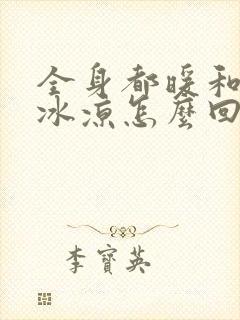 全身都暖和
冰凉怎麼回
李寶英